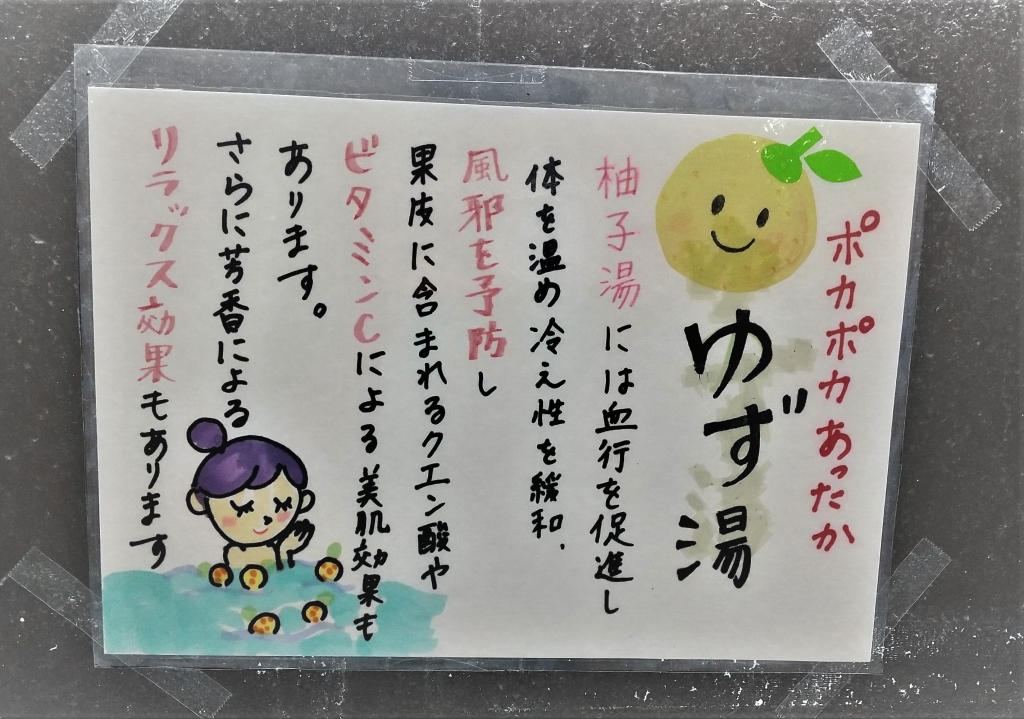 ポカポカあったか
ゆず湯
柚子湯には血行を促進し
体を温め冷え性を緩和、
風邪を予防し
果皮に含まれるクエン酸や
ビタミンCによる美肌効果も
あります。
さらに芳香による
リラックス効果もあります